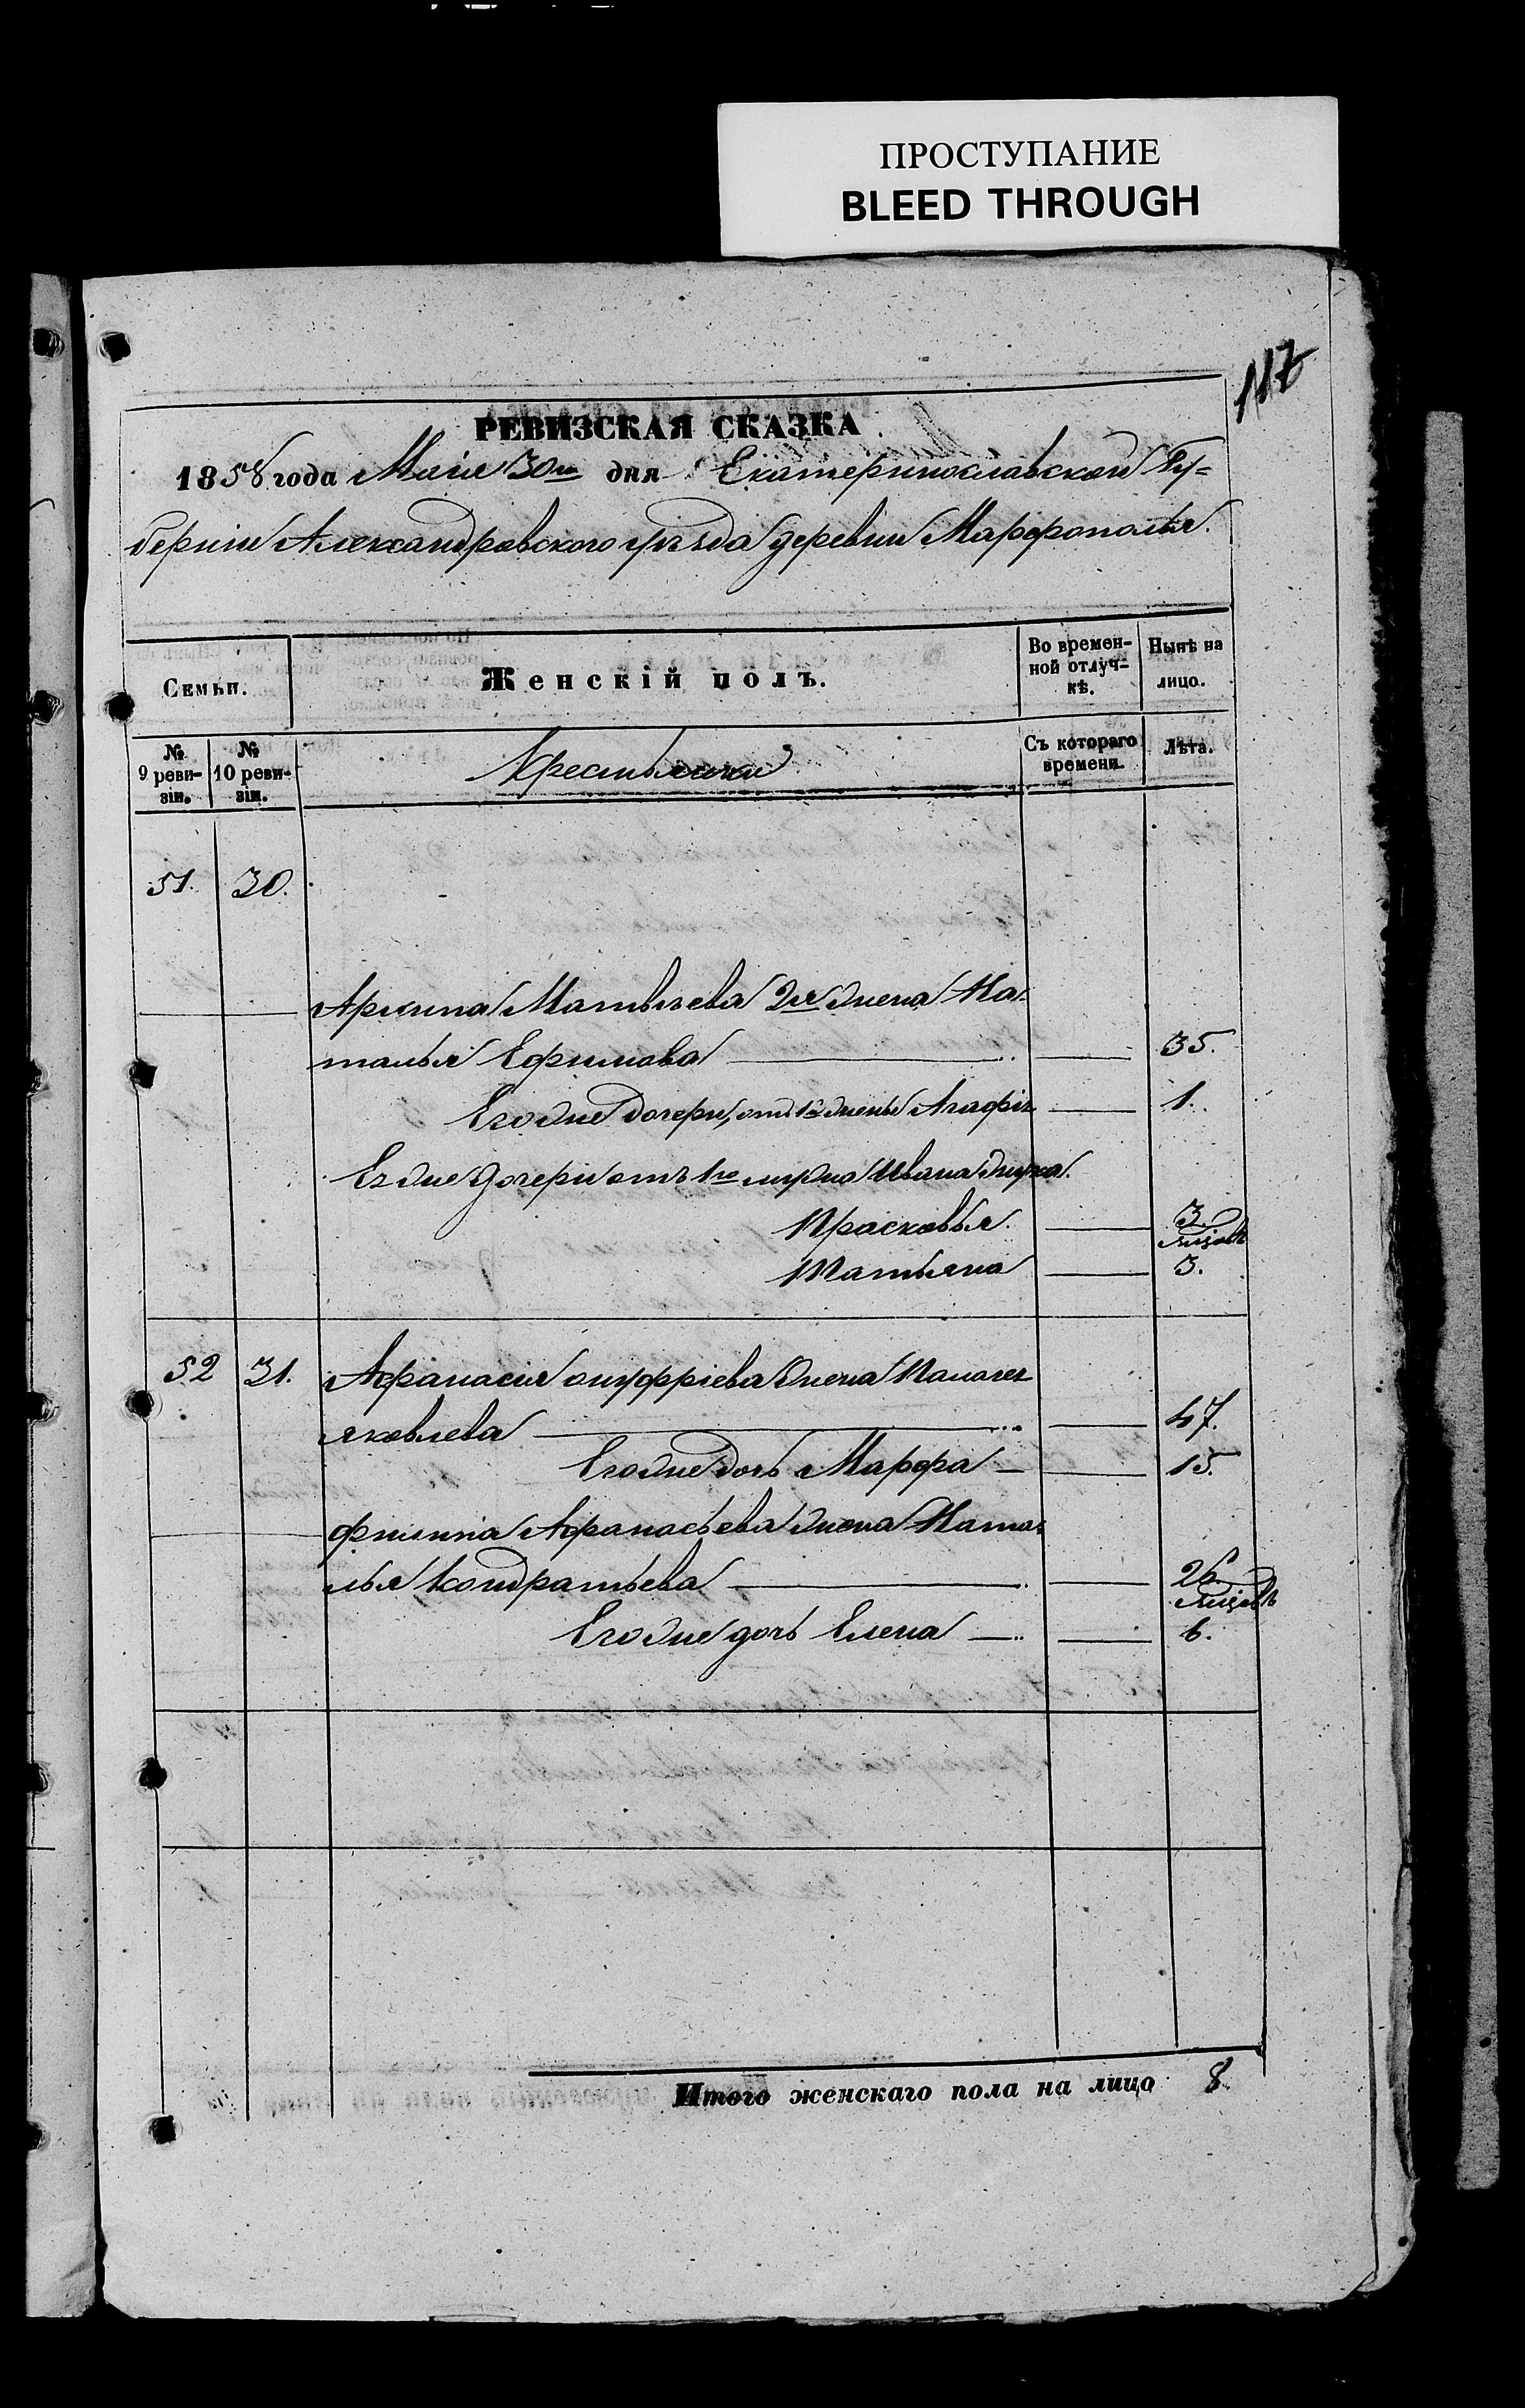 ПРОСТУПАНИЕ
BLEED THROUGH
117
РЕВИЗСКАЯ СКАЗКА
1858 года Маія 30го дня Екатеринославской Гу-
берніи Александровского уѣзда деревни Марфополья.
Семьи.
Женскій полъ.
Во времен-
ной отлуч-
кѣ.
Нынѣ на
лицо.
№
9 реви-
зіи.
№
10 реви-
зіи.
Крестьянки
Съ котораго
времени.
Лѣта.
51. 30.
Архипа Матвѣева 2я жена На-
талья Ефимова 35.
Его же дочери, отъ 1й жены Агафія 1.
Ея же дочери отъ 1го мужа Ивана
Прасковья. 3.
Татьяна 3.
52 31. Афанасія онуфріева жена Палагея
яковлева 47.
Его же дочь Марфа 15.
филипа Афанасьева жена Ната-
лья Кондратьева 26.
Его же дочь Елена 6.
Итого женскаго пола на лицо 8